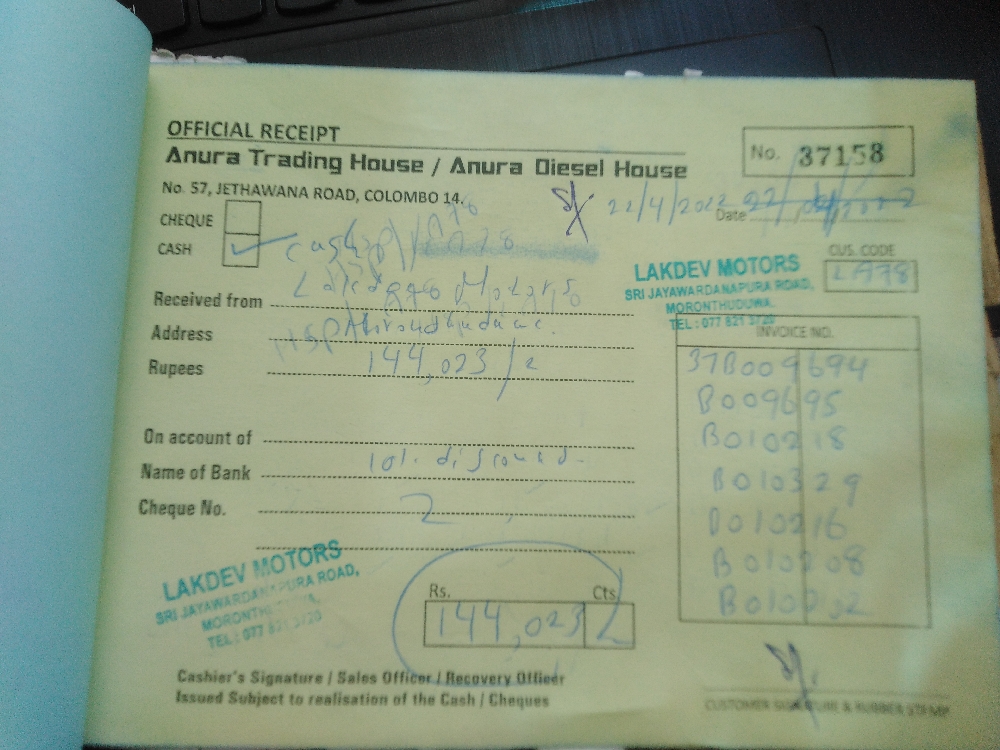 OFFICIAL RECEIPT
Anura Trading House / Anura Diesel House
No. 37158
No. 57, JETHAWANA ROAD, COLOMBO 14.
22/4/2022
Date
CHEQUE
CASH
LAKDEV MOTORS
SRI JAYAWARDANAPURA ROAD,
MORONTHUDUWA.
TEL : 077 821 3720
CUS. CODE
LA78
Received from Motors
Address
Rupees 144,023/
On account of
Name of Bank 10%
Cheque No.
INVOICE NO.
37B009694
B009695
B010218
B010329
B010216
B010208
LAKDEV MOTORS
SRI JAYAWARDANAPURA ROAD,
MORONTHUDUWA.
TEL : 077 821 3720
Rs. Cts.
144,023
Cashier's Signature / Sales Officer / Recovery Officer
Issued Subject to realisation of the Cash / Cheques
CUSTOMER SIGNATURE & RUBBER STAMP